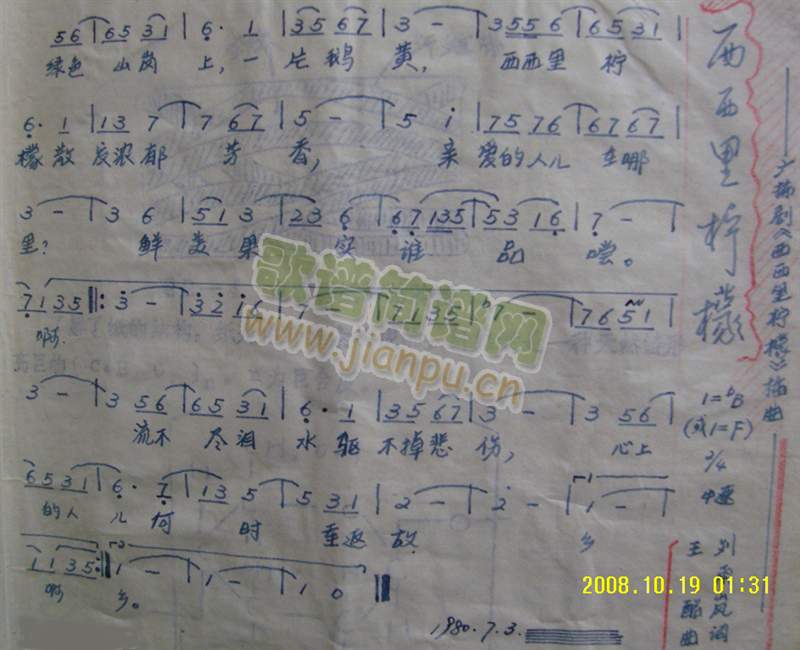 西西里柠檬
——广播剧《西西里柠檬》插曲
1=♭B
(或1=F)
2/4
中速
词
王酩曲
56 65 31 | 6· 1 | 35 67 | 3 — | 3 55 6 | 65 31 |
绿色 山岗 上, 一 片 鹅 黄, 西西里 柠
6· 1 | 13 7 | 7 67 | 5 — | 5 i | 75 76 | 67 67 |
檬散发浓郁 芳 香, 亲 爱的人儿 在哪
3 — | 3 6 | 51 3 | 23 6 | 67 135 | 53 16 | 7 — |
里? 鲜美果 实 谁 品 尝。
7135 ‖: 3 — | 3216 | 7 — | 7135 | 7 — | 7651 |
啊
3 — | 3 56 | 65 31 | 6· 1 | 35 67 | 3 — | 3 56 |
流不 尽泪 水 驱 不掉悲 伤, 心上
65 31 | 6· 7 | 13 5 | 5 31 | 2 — | 2 — | 1 — |
的人 儿 何 时 重返 故 乡
1135 :‖ 1 — | 1 — | 1 0 ‖
啊 乡。
1980.7.3.
歌谱简谱网
www.jianpu.cn
2008.10.19 01:31